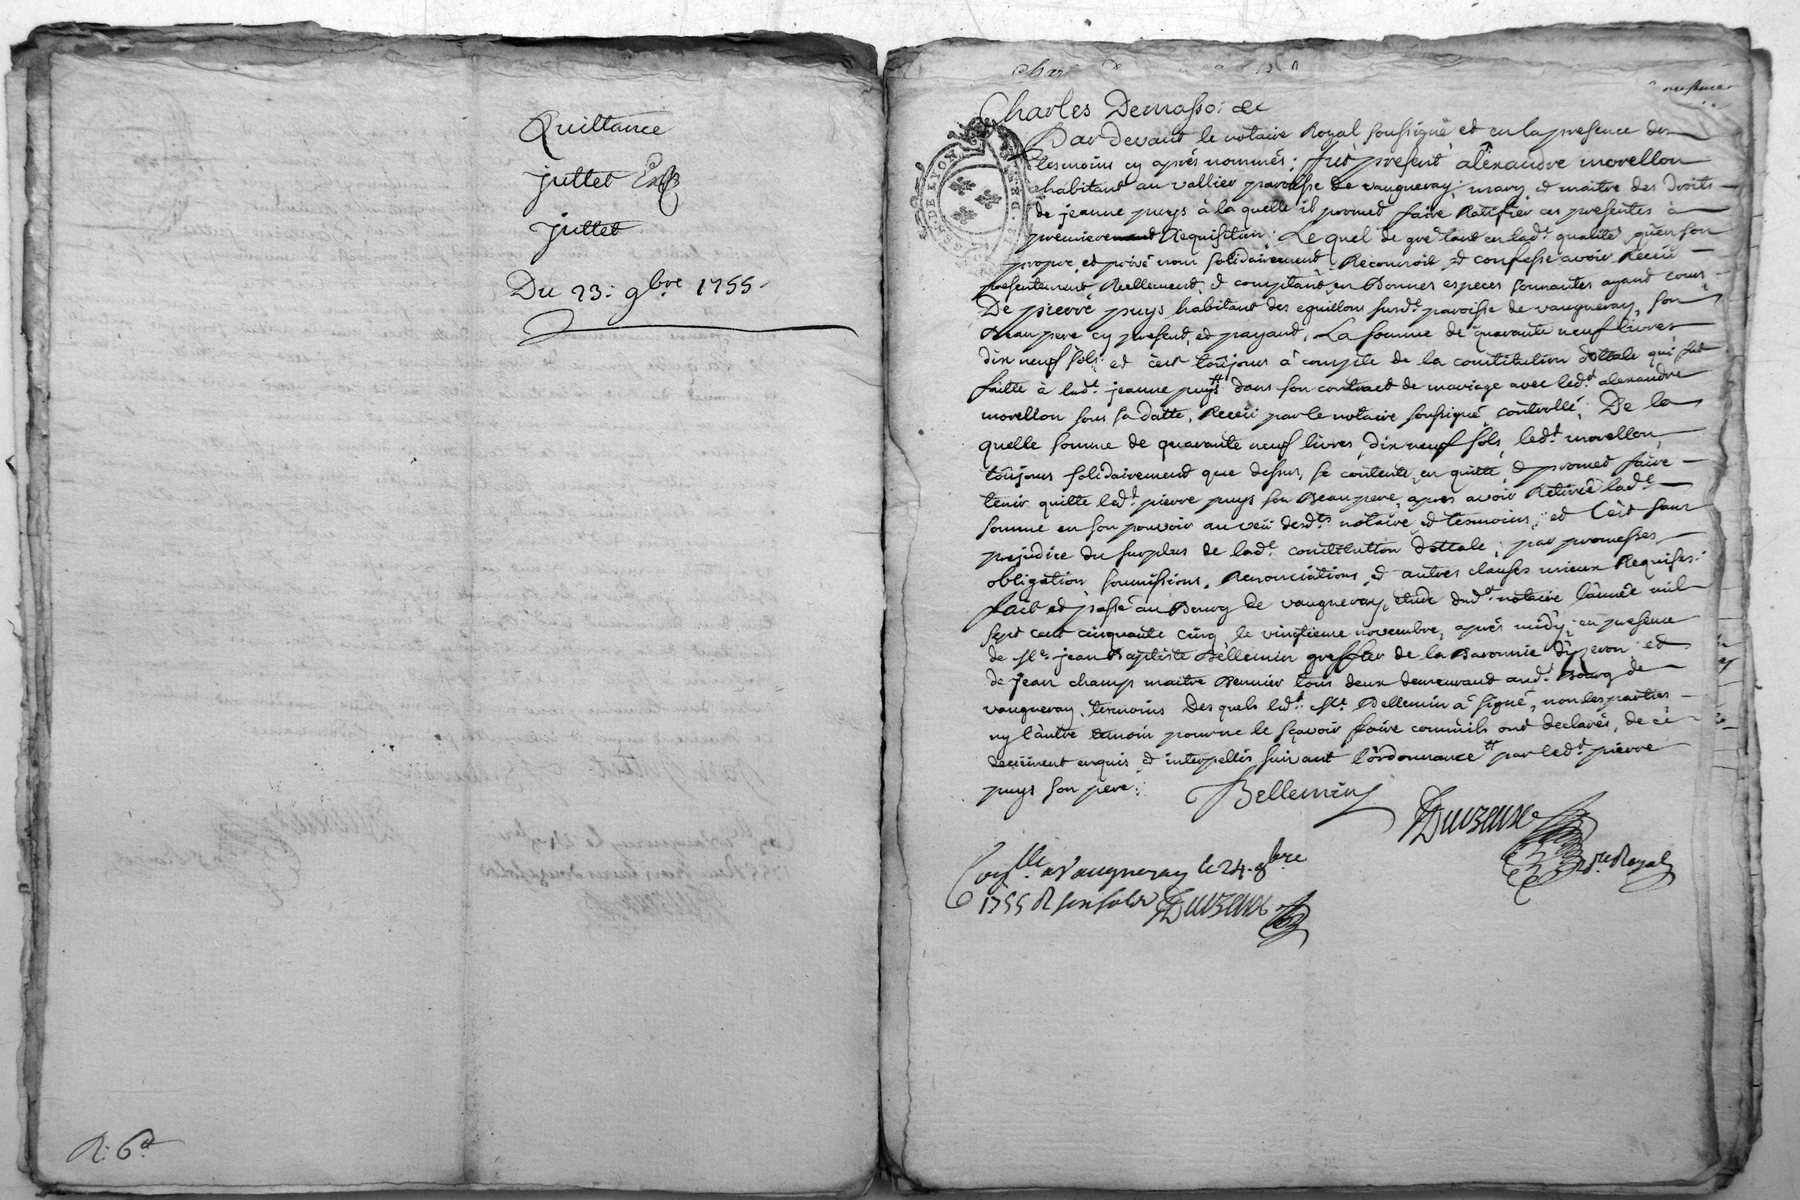 Quittance
juttet
juttet
Du 23: 9bre 1755.
R: 6d
Charles Demasso: &c
Par Devant le notaire Royal soussigné et en la presence des
tesmoins cy après nommés; fut present alexandre morellon
habitant au vallier paroisse de vaugneray; mary et maitre des Droits
de jeanne puys à la quelle il promet faire Ratifier ces presentes à
premiere Requisition; Le quel de gré tant en lade qualité qu'en son
propre et privé nom solidairement, Reconnoit et confesse avoir Receu
presentement Reellement, et comptant en Bonnes especes sonnantes ayant cours
De pierre puys habitant des eguillons susde paroisse de vaugneray, son
Beaupere cy present, et payant, La somme de quarante neuf livres
dix neuf sols; et c'est toujours à compte de la constitution dottale qui fut
faitte à lade jeanne puys dans son contract de mariage avec ledt alexandre
morellon sous sa datte, Receu par le notaire soussigné controllé; De la
quelle somme de quarante neuf livres, dix neuf sols, ledt morellon,
toujours solidairement que dessus, se contente, en quitte, et promet faire
tenir quitte ledt pierre puys son Beaupere, apres avoir Retirée lade
somme en son pouvoir au veu desdts notaire et tesmoins; et c'est sans
prejudice du surplus de lade constitution dottale; par promesses
obligation soumissions, Renonciations, et autres clauses mieux Requises:
fait et passé au Bourg de vaugneray, etude dudt notaire l'année mil
sept cent cinquante cinq, le vingtieme novembre, après midy; en presence
de Me jean Baptiste Bellemin greffier de la Baronnie d'yzeron et
de jean champ maitre Bennier tous deux demeurant audt Bourg de
vaugneray, tesmoins Des quels ledt Me Bellemin à signé, non les parties
ny l'autre temoin pour ne le sçavoir faire comm'ils ont declarés, de ce
deuëment enquis et interpellés suivant l'ordonnance par ledt pierre
puys son pere:
Bellemin
Duvzeux
Nre Royal
Conllé à Vaugneray le 24. 9bre
1755 R six sols Duvzeux